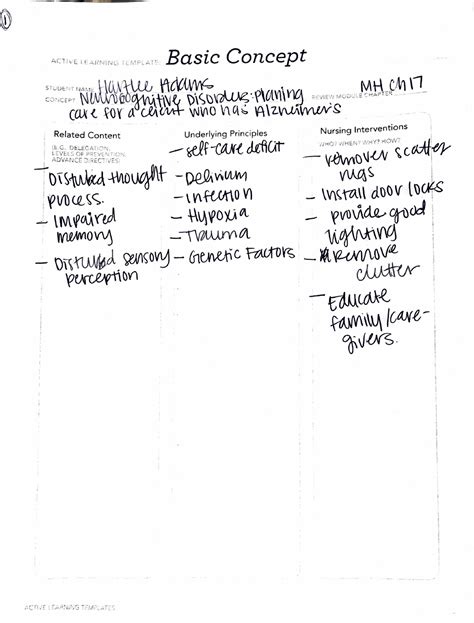 1
ACTIVE LEARNING TEMPLATE: Basic Concept
STUDENT NAME Adams
CONCEPT Neurocognitive Disorders: Planing
care for a client who has Alzheimer's
REVIEW MODULE CHAPTER MH Ch 17
Related Content
(E.G., DELEGATION,
LEVELS OF PREVENTION,
ADVANCE DIRECTIVES)
- Disturbed thought
process.
- Impaired
memory
- Disturbed sensory
perception
Underlying Principles
- self-care deficit
- Delirium
- Infection
- Hypoxia
- Trauma
- Genetic Factors
Nursing Interventions
WHO? WHEN? WHY? HOW?
- remover scatter
rugs
- Install door locks
- provide good
lighting
- Remove
clutter
- Educate
family/care-
givers.
ACTIVE LEARNING TEMPLATES